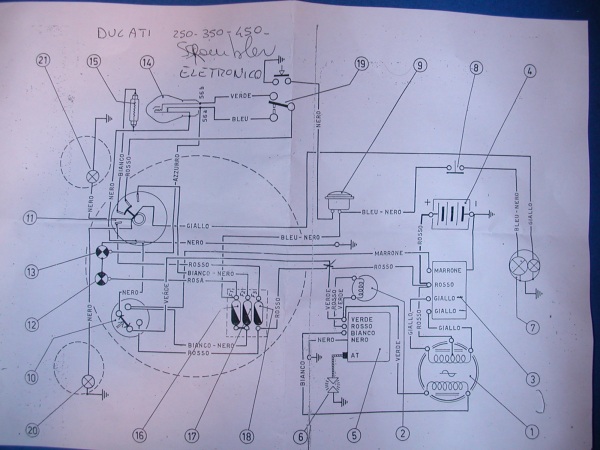 DUCATI 250-350-450-
Scrambler
ELETRONICO
21
15
14
19
9
8
4
56 b
56 a
VERDE
BLEU
NERO
NERO
BIANCO
ROSSO
AZZURRO
NERO
11
GIALLO
BLEU-NERO
BLEU-NERO
BLEU-NERO
GIALLO
+ -
NERO
13
MARRONE
MARRONE
ROSSO
BIANCO-NERO
ROSA
ROSSO
ROSSO
ROSSO
GIALLO
GIALLO
12
NERO
VERDE
ROSSO
VERDE
ROSSO
VERDE
VERDE
ROSSO
BIANCO
NERO
AT
NERO
GIALLO
GIALLO
7
10
BIANCO-NERO
ROSSO
NERO
BIANCO
VERDE
3
20
16
17
18
6
5
2
1